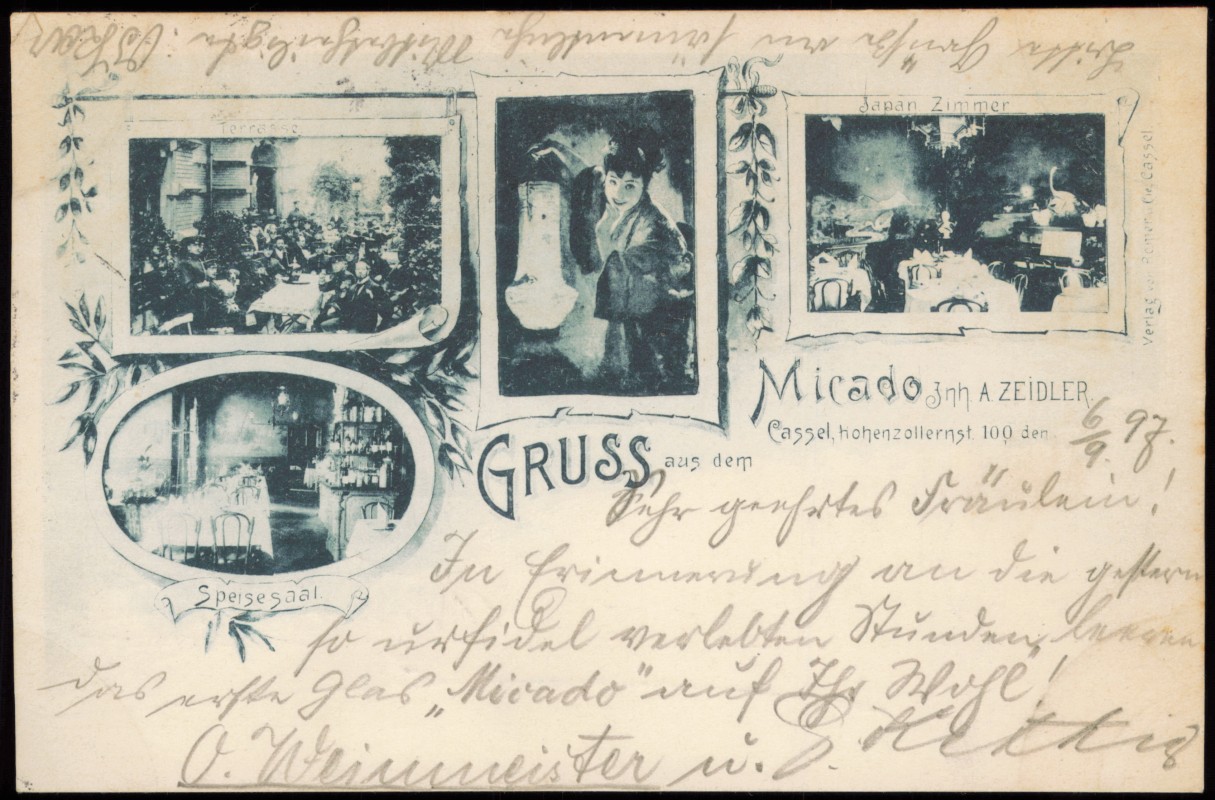 Bitte Grüße an sämmtliche
Terrasse
Japan Zimmer
Verlag
Cassel.
Micado Inh. A. ZEIDLER.
Cassel, Hohenzollernst. 100 den 6/9. 97.
GRUSS aus dem
Speisesaal.
Sehr geehrtes Fräulein!
In Erinnerung an die gestern
so urfidel verlebten Stunden, leeren
das erste Glas „Micado“ auf Ihr Wohl!
O. Weinmeister u.